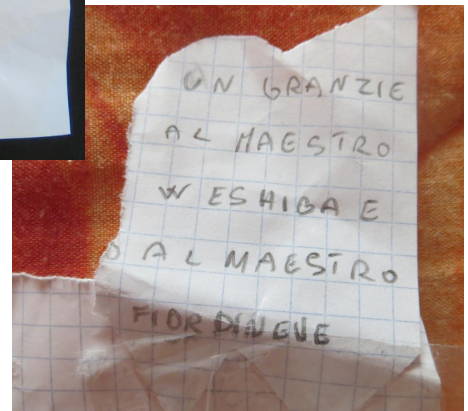 UN GRANZIE
AL MAESTRO
W ESHIBA E
O AL MAESTRO
FIORDINEVE